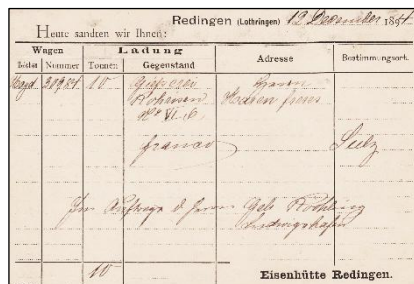 Redingen (Lothringen) 12 December 1884
Heute sandten wir Ihnen:
Wagen Ladung Adresse Bestimmungsort.
Nummer Tonnen Gegenstand
10 Giesserei Herrn
Roheisen
No VI
franco Sulz
Im Auftrage d. Herren Gebr. Röchling
Ludwigshafen
10
Eisenhütte Redingen.